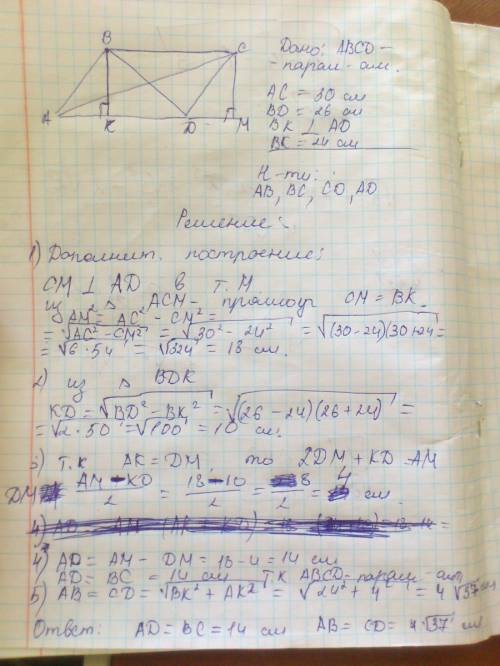 B
C
A
K
D
M
Дано: ABCD -
- парал - ам.
AC = 30 см
BD = 26 см
BK ⊥ AD
BK = 24 см
Н-ти:
AB, BC, CD, AD
Решение:
1) Дополнит. построение:
CM ⊥ AD в т. М
из △ ACM - прямоуг CM = BK.
AM² = AC² - CM² =
= √AC² - CM² = √30² - 24² = √(30-24)(30+24) =
= √6 · 54 = √324 = 18 см.
2) из △ BDK
KD = √BD² - BK² = √(26 - 24)(26 + 24) =
= √2 · 50 = √100 = 10 см.
3) т.к AK = DM, то 2DM + KD = AM
DM = AM - KD / 2 = 18 - 10 / 2 = 8 / 2 = 4 см.
4) AD = AM - DM = 18 - 4 = 14 см
AD = BC = 14 см т.к ABCD = парал - ам
5) AB = CD = √BK² + AK² = √24² + 4² = 4√37 см
Ответ: AD = BC = 14 см AB = CD = 4√37 см